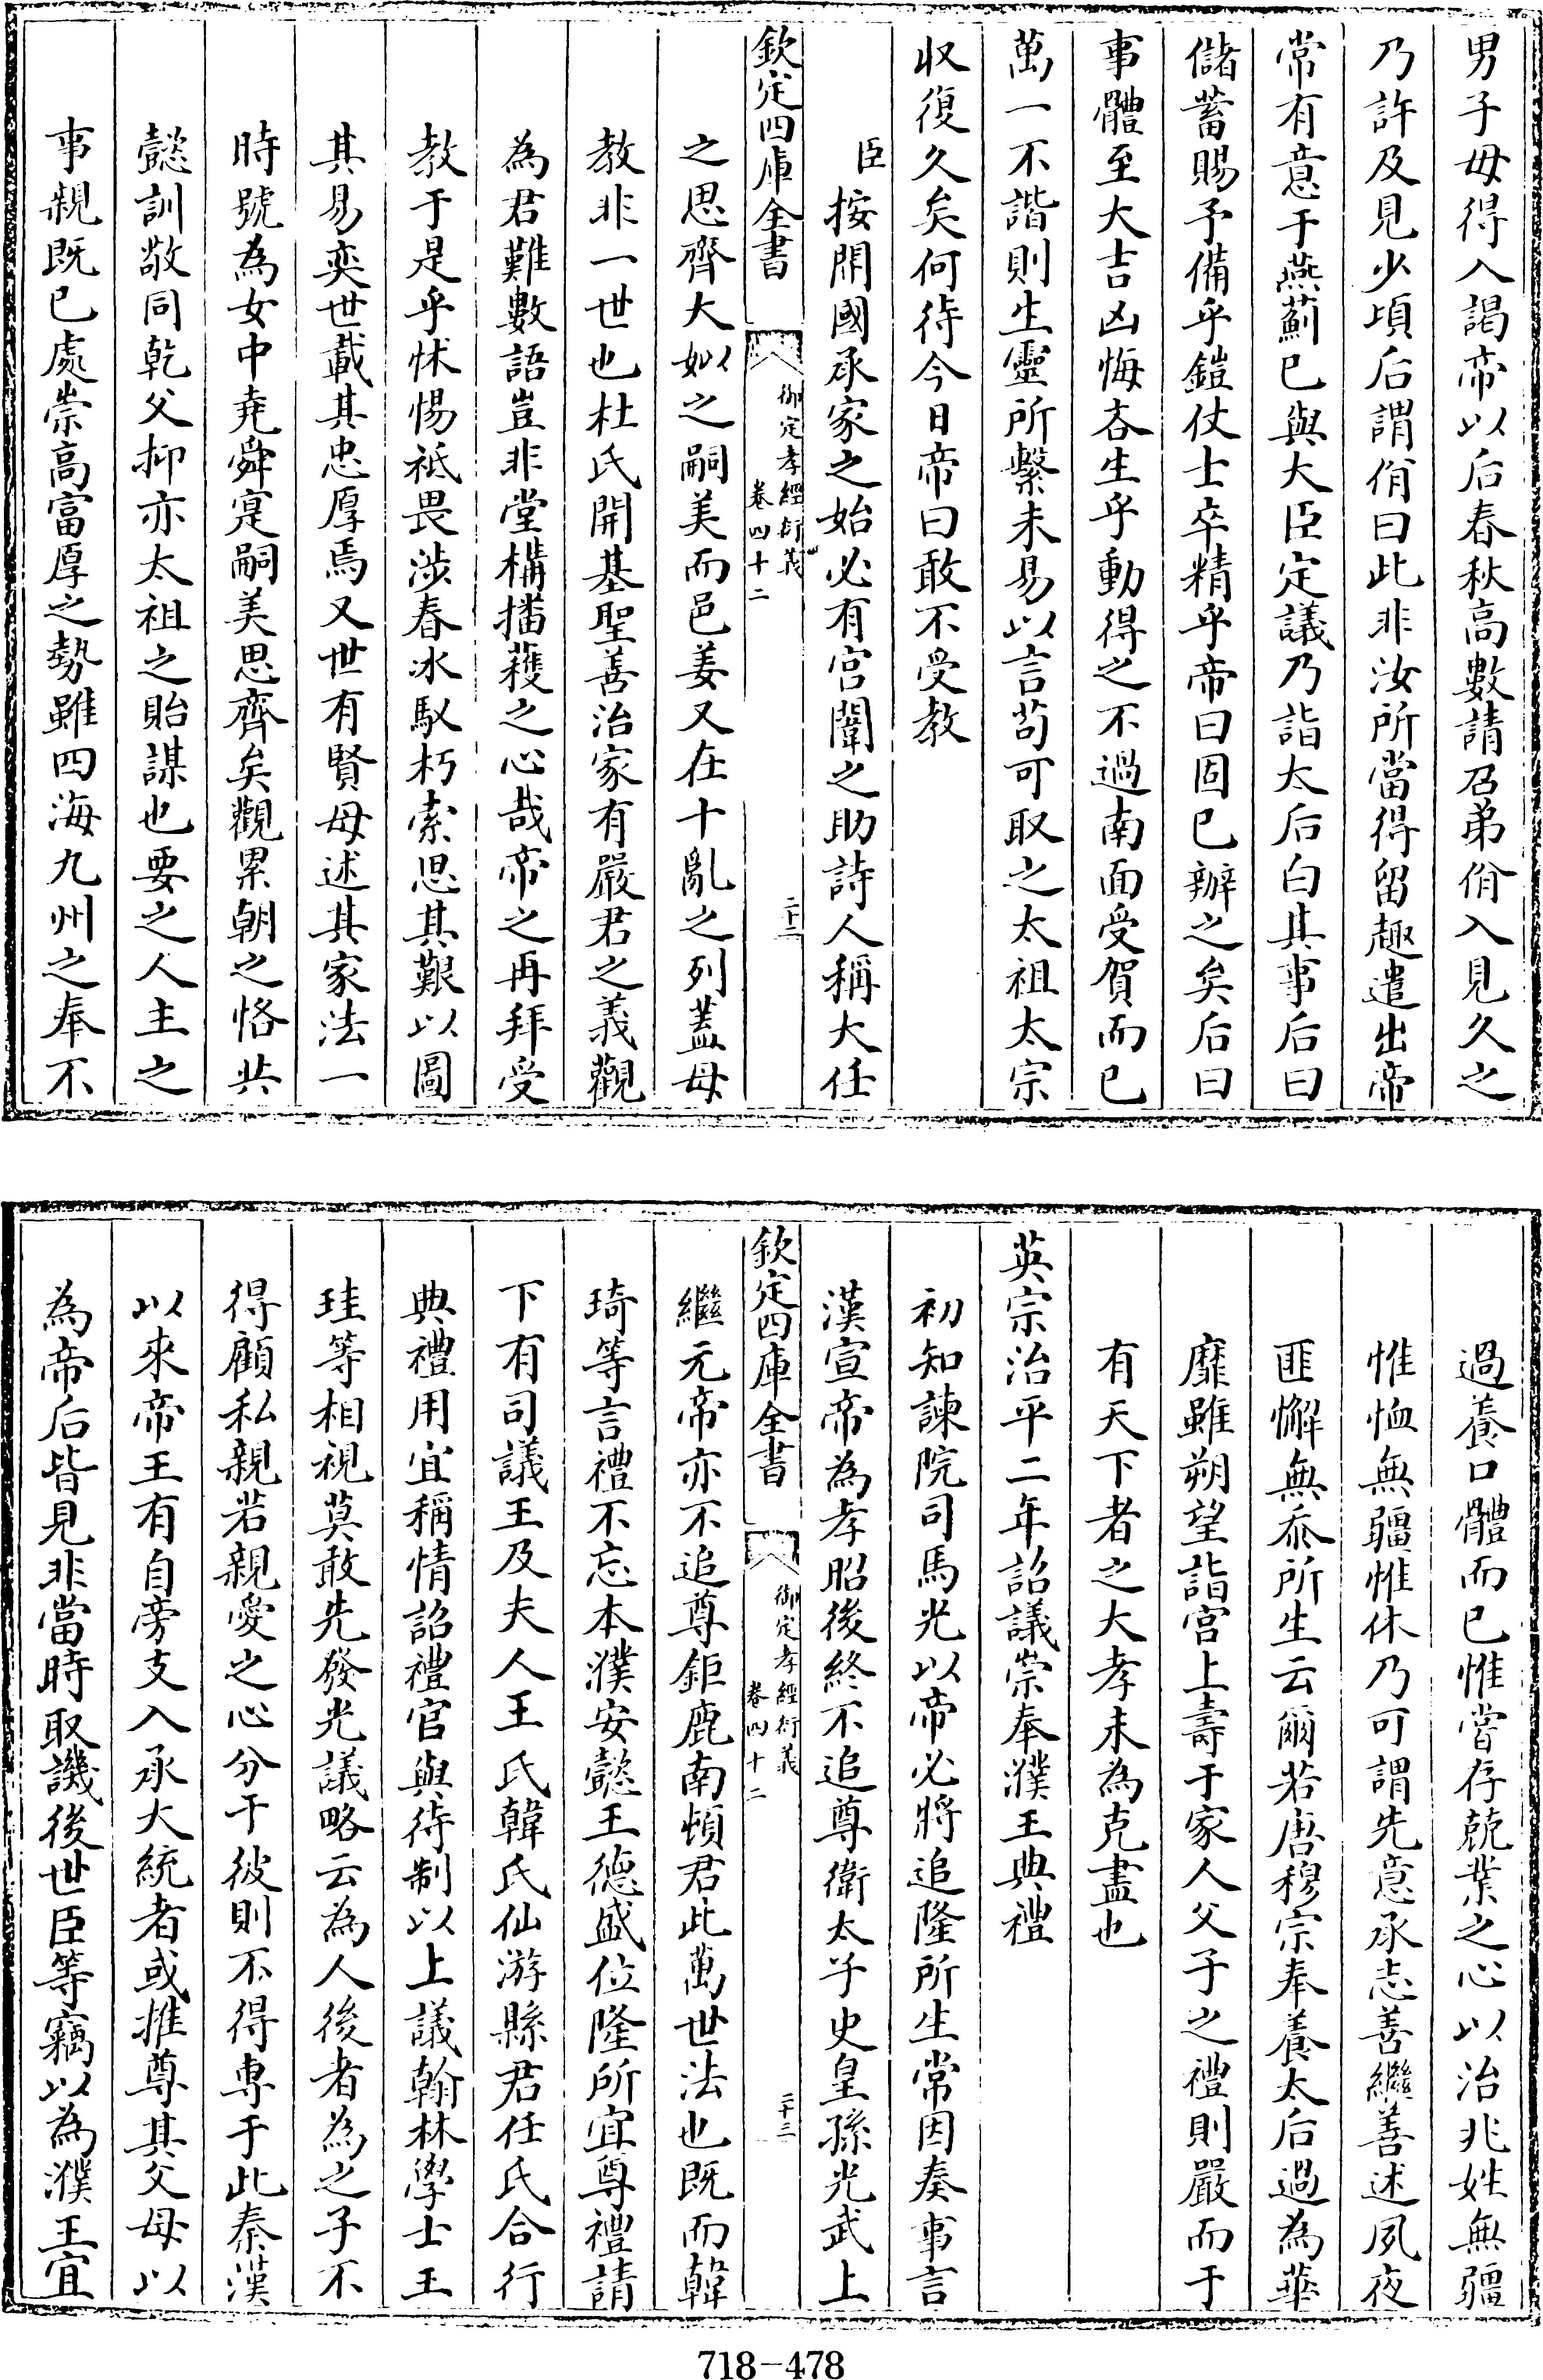 男子毋得入謁帝以后春秋高數請召弟佾入見久之
乃許及見少頃后謂佾曰此非汝所當得留趣遣出帝
常有意于燕薊已與大臣定議乃詣太后白其事后曰
儲蓄賜予備乎鎧仗士卒精乎帝曰固已辦之矣后曰
事體至大吉凶悔吝生乎動得之不過南面受賀而已
萬一不諧則生靈所繫未易以言苟可取之太祖太宗
収復久矣何待今日帝曰敢不受教
臣按開國承家之始必有宫闈之助詩人稱大任
欽定四庫全書
御定孝經衍義
卷四十二
二十二
之思齊大姒之嗣美而邑姜又在十亂之列蓋母
教非一世也杜氏開基聖善治家有嚴君之義觀
為君難數語豈非堂構播穫之心哉帝之再拜受
教于是乎怵惕祗畏涉春冰馭朽索思其艱以圖
其易奕世載其忠厚焉又世有賢母述其家法一
時號為女中堯舜寔嗣美思齊矣觀累朝之恪共
懿訓敬同乾父抑亦太祖之貽謀也要之人主之
事親既已處崇高富厚之勢雖四海九州之奉不
過養口體而已惟當存兢業之心以治兆姓無疆
惟恤無疆惟休乃可謂先意承志善繼善述夙夜
匪懈無忝所生云爾若唐穆宗奉養太后過為華
靡雖朔望詣宫上壽于家人父子之禮則嚴而于
有天下者之大孝未為克盡也
英宗治平二年詔議崇奉濮王典禮
初知諫院司馬光以帝必將追隆所生常因奏事言
漢宣帝為孝昭後終不追尊衛太子史皇孫光武上
欽定四庫全書
御定孝經衍義
卷四十二
二十三
繼元帝亦不追尊鉅鹿南頓君此萬世法也既而韓
琦等言禮不忘本濮安懿王德盛位隆所宜尊禮請
下有司議王及夫人王氏韓氏仙游縣君任氏合行
典禮用宜稱情詔禮官與待制以上議翰林學士王
珪等相視莫敢先發光議略云為人後者為之子不
得顧私親若親愛之心分于彼則不得專于此秦漢
以來帝王有自旁支入承大統者或推尊其父母以
為帝后皆見非當時取譏後世臣等竊以為濮王宜
718-478